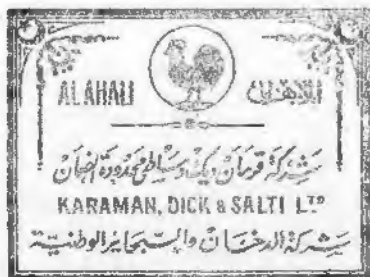 ALAHALI الاهلي
شركة قرمان ديك وسلطي محدودة الضمان
KARAMAN, DICK & SALTI LTD
شركة الدخان والسجاير الوطنية